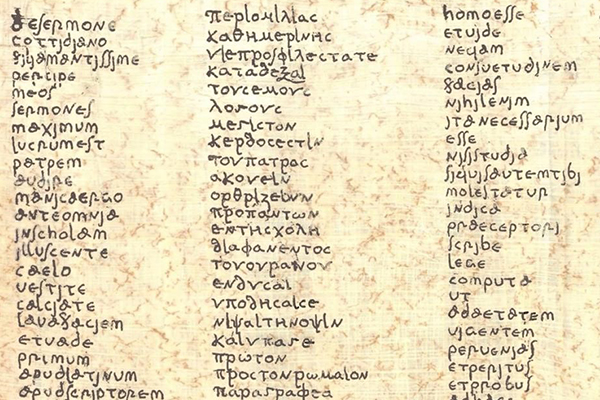 desermone
cottidiano
filiamantissime
percipe
meos
sermones
maximum
lucrumest
patrem
audire
manicaergo
anteomnia
inscholam
illuscente
caelo
vestite
calciate
lavafaciem
etvade
primum
apudlatinum
apudscriptorem
περιομιλιας
καθημερινης
υιεπροσφιλεστατε
καταδεξαι
τουσεμους
λογους
μεγιστον
κερδοσεστιν
τονπατρας
ακουειν
ορθριζεουν
προπαντων
εντησχολη
διαφανεντος
τουουρανου
ενδυσαι
υποδησαισε
νιψαιτηνοψιν
καιυπαγε
πρωτον
προστονρωμαιον
παραγραφεα
homoesse
etvide
nequam
consuetudinem
facias
nihilenim
itanecessarium
esse
nisistudia
siquisautemtibi
molestatur
indica
praeceptori
scribe
lege
computa
ut
adaetatem
vigentem
pervenias
etperitus
etprobus